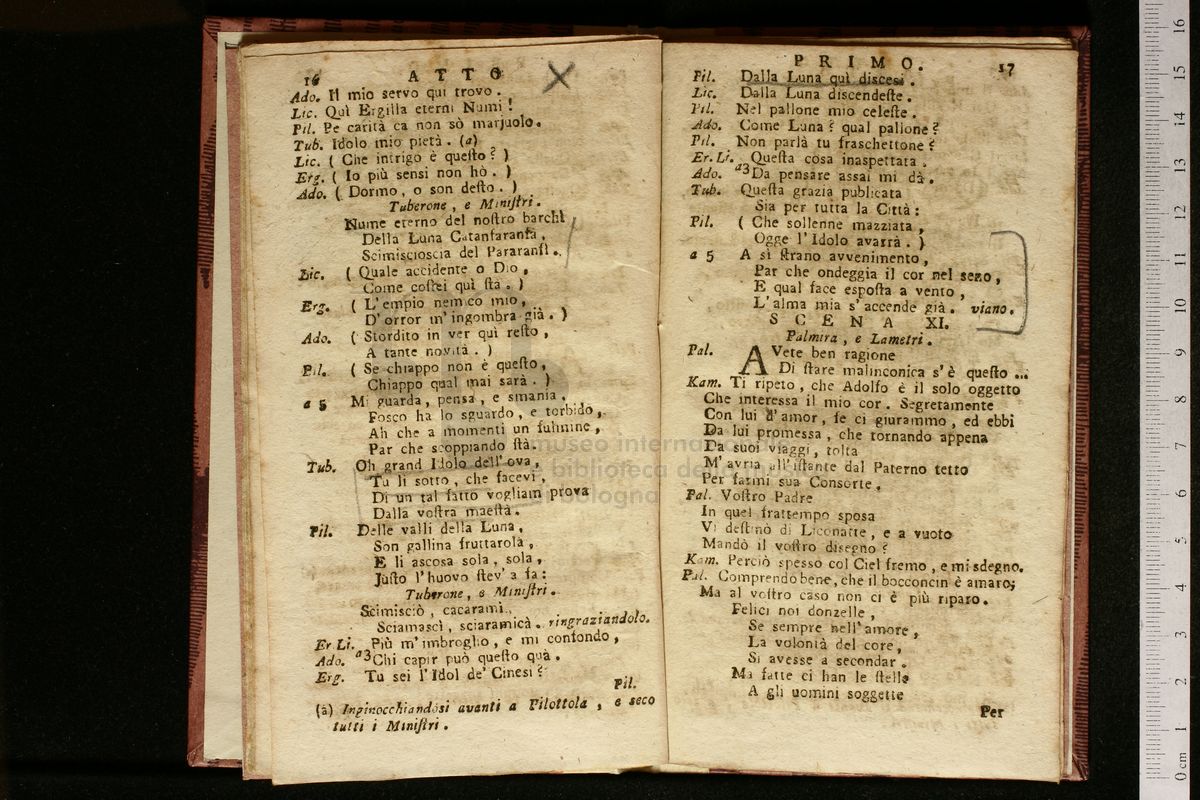 16 ATTO
Ado. Il mio servo qui trovo.
Lic. Quì Ergilla eterni Numi!
Pil. Pe carità ca non sò marjuolo.
Tub. Idolo mio pietà. (a)
Lic. ( Che intrigo è questo? )
Erg. ( Io più sensi non hò. )
Ado. ( Dormo, o son desto. )
Tuberone, e Ministri.
Nume eterno del nostro barchì
Della Luna Catanfaranfa,
Scimiscioscia del Pararansì.
Lic. ( Quale accidente o Dio,
Come costei quì stà. )
Erg. ( L'empio nemico mio,
D'orror m'ingombra già. )
Ado. ( Stordito in ver quì resto,
A tante novità. )
Pil. ( Se chiappo non è questo,
Chiappo qual mai sarà. )
a 5 Mi guarda, pensa, e smania,
Fosco ha lo sguardo, e torbido,
Ah che a momenti un fulmine,
Par che scoppiando stà.
Tub. Oh grand Idolo dell'ova,
Tu li sotto, che facevi,
Di un tal fatto vogliam prova
Dalla vostra maestà.
Pil. Delle valli della Luna,
Son gallina fruttarola,
E li ascosa sola, sola,
Justo l'huovo stev'a fa:
Tuberone, e Ministri.
Scimisciò, cacaramì,
Sciamascì, sciaramicà. ringraziandolo.
Er. Li. Più m'imbroglio, e mi confondo,
Ado. a3 Chi capir può questo quà.
Erg. Tu sei l'Idol de' Cinesi?
Pil.
(a) Inginocchiandosi avanti a Pilottola, e seco
tutti i Ministri.
PRIMO. 17
Pil. Dalla Luna quì discesi.
Lic. Dalla Luna discendeste.
Pil. Nel pallone mio celeste.
Ado. Come Luna? qual pallone?
Pil. Non parlà tu fraschettone?
Er. Li. Questa cosa inaspettata.
Ado. a3 Da pensare assai mi dà.
Tub. Questa grazia publicata
Sia per tutta la Città:
Pil. ( Che sollenne mazziata,
Ogge l'Idolo avarrà. )
a 5 A sì strano avvenimento,
Par che ondeggia il cor nel seno,
E qual face esposta a vento,
L'alma mia s'accende già. viano.
SCENA XI.
Palmira, e Lametri.
Pal. AVete ben ragione
Di stare malinconica s'è questo ...
Kam. Ti ripeto, che Adolfo è il solo oggetto
Che interessa il mio cor. Segretamente
Con lui d'amor, fe ci giurammo, ed ebbi
Da lui promessa, che tornando appena
Da suoi viaggi, tolta
M'avria all'istante dal Paterno tetto
Per farmi sua Consorte.
Pal. Vostro Padre
In quel frattempo sposa
Vi destinò di Liconatte, e a vuoto
Mandò il vostro disegno?
Kam. Perciò spesso col Ciel fremo, e mi sdegno.
Pal. Comprendo bene, che il bocconcin è amaro;
Ma al vostro caso non ci è più riparo.
Felici noi donzelle,
Se sempre nell'amore,
La volontà del core,
Si avesse a secondar.
Ma fatte ci han le stelle
A gli uomini soggette
Per
museo internazionale
e biblioteca della musica
di bologna
0 cm 1 2 3 4 5 6 7 8 9 10 11 12 13 14 15 16